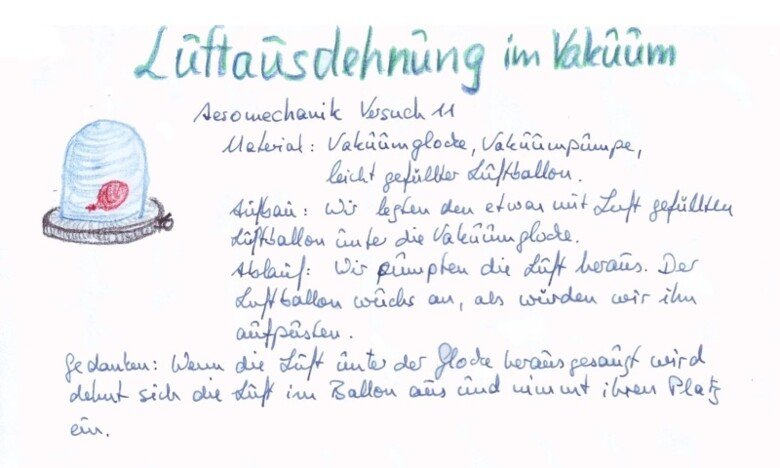 Luftausdehnung im Vakuum
Aeromechanik Versuch 11
Material: Vakuumglocke, Vakuumpumpe,
leicht gefüllter Luftballon.
Aufbau: Wir legten den etwas mit Luft gefüllten
Luftballon unter die Vakuumglocke.
Ablauf: Wir pumpten die Luft heraus. Der
Luftballon wuchs an, als würden wir ihn
aufpusten.
Gedanken: Wenn die Luft unter der Glocke herausgesaugt wird
dehnt sich die Luft im Ballon aus und nimmt ihren Platz
ein.